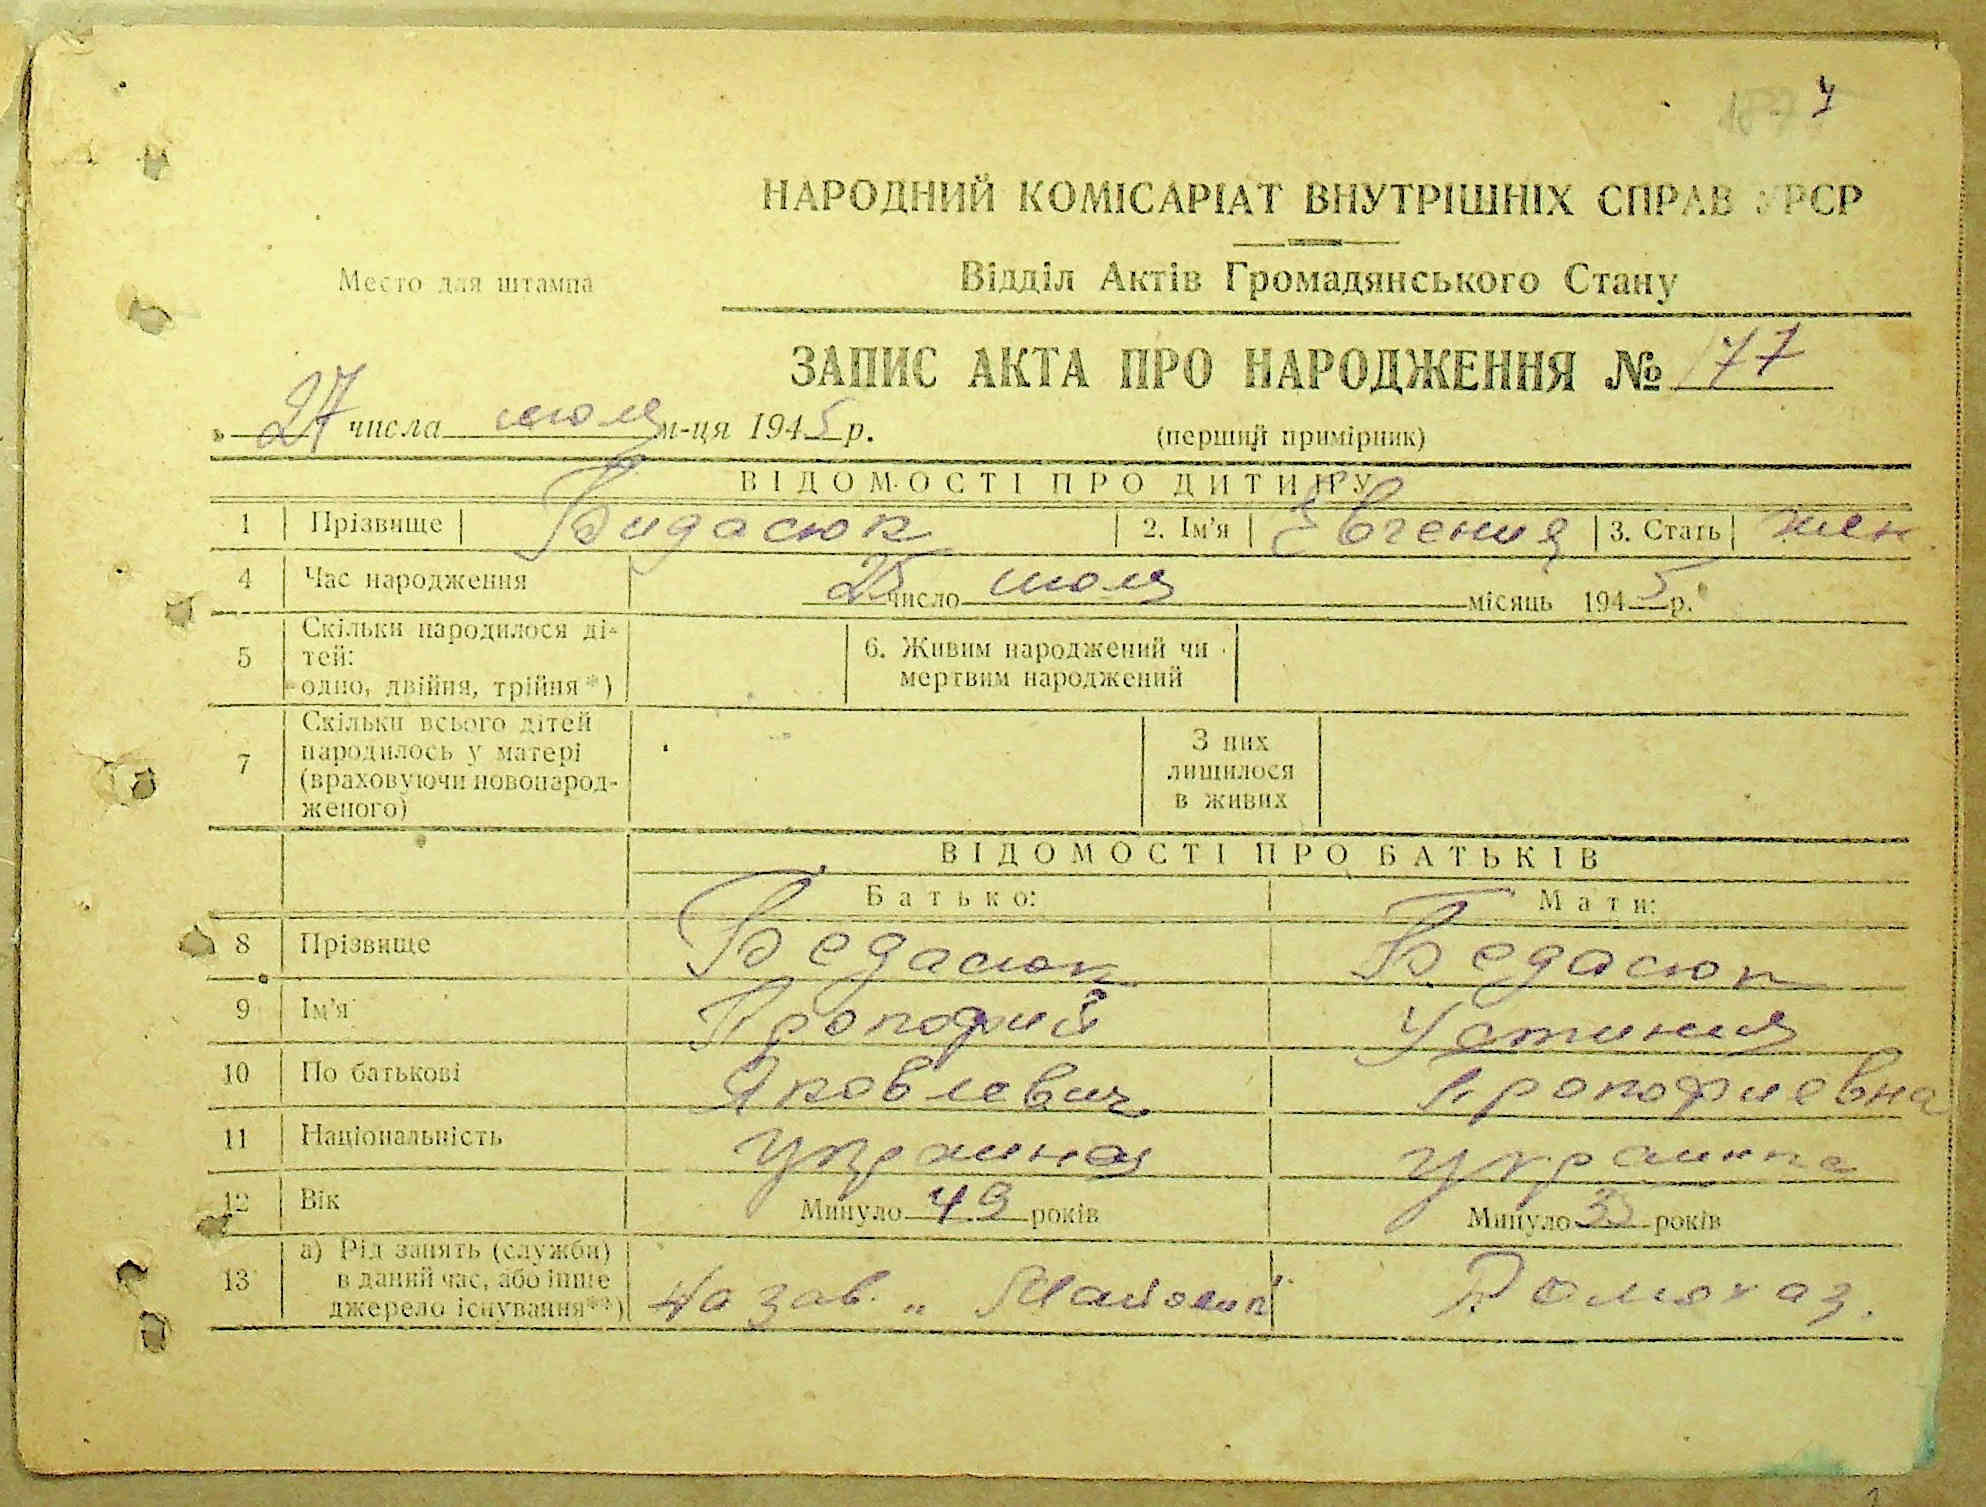 4
НАРОДНИЙ КОМІСАРІАТ ВНУТРІШНІХ СПРАВ УРСР
Место для штампа
Відділ Актів Громадянського Стану
ЗАПИС АКТА ПРО НАРОДЖЕННЯ № 77
„ 27 числа июля м-ця 1945 р.
(перший примірник)
ВІДОМОСТІ ПРО ДИТИНУ
1 Прізвище Бидасюк 2. Ім'я Евгения 3. Стать жен.
4 Час народження 25 число июля місяць 1945 р.
5 Скільки народилося ді-
тей:
одно, двійня, трійня*)
6. Живим народжений чи
мертвим народжений
7 Скільки всього дітей
народилось у матері
(враховуючи новонарод-
женого)
З них
лишилося
в живих
ВІДОМОСТІ ПРО БАТЬКІВ
Батько: Мати:
8 Прізвище Бедасюк Бедасюк
9 Ім'я Прокофий Устиния
10 По батькові Яковлевич Прокофиевна
11 Національність украинец украинка
12 Вік Минуло 49 років Минуло 35 років
13 а) Рід занять (служби)
в даний час, або інше
джерело існування**)
На зав. „ Домохоз.